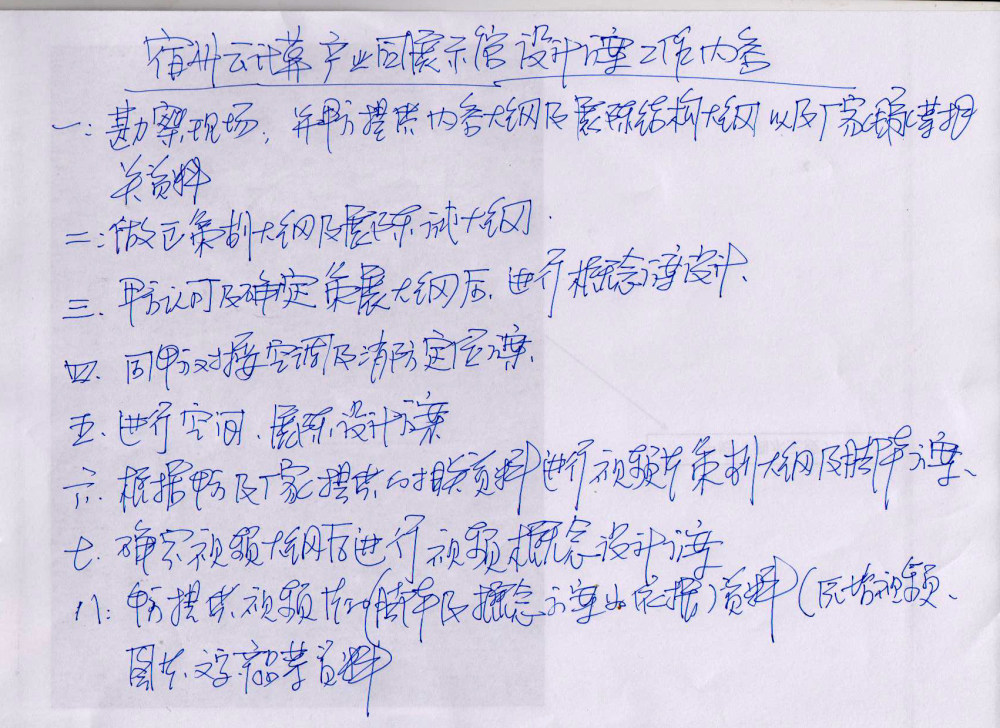 宿州云计算产业园展示馆设计方案工作内容
一:勘察现场,并甲方提供内容大纲及展陈结构大纲以及厂家相
关资料
二:做正策划大纲及展陈大纲.
三.甲方认可及确定策展大纲后,进行概念方案设计、
四.同甲方对接空调及消防定位方案
五.进行空间、展陈设计方案
六.根据甲方及厂家提供的相关资料进行视频片策划大纲及脚本方案、
七.确定视频大纲后进行视频概念设计方案
八:甲方提供视频片(脚本及概念方案为依据)资料(原始视频、
图片、文字、产品等资料